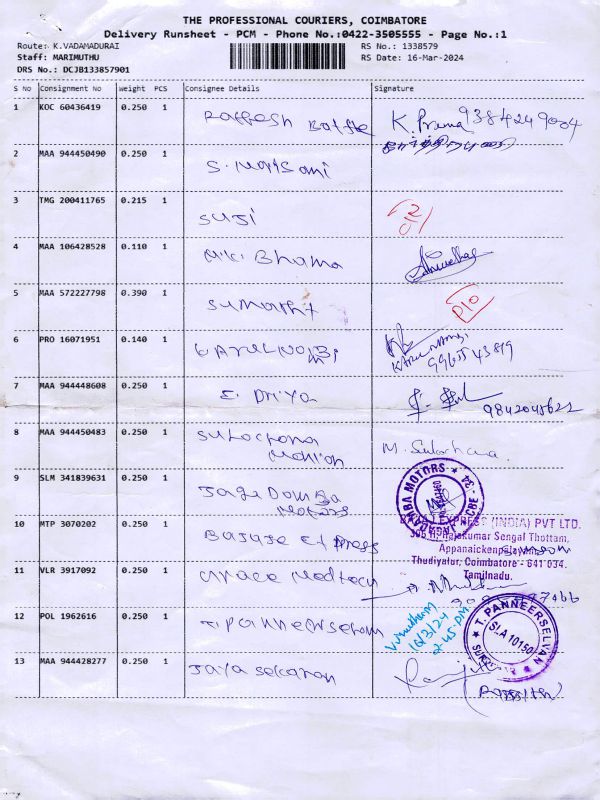 THE PROFESSIONAL COURIERS, COIMBATORE
Delivery Runsheet - PCM - Phone No.:0422-3505555 - Page No.:1
Route: K.VADAMADURAI
RS No.: 1338579
Staff: MARIMUTHU
RS Date: 16-Mar-2024
DRS No.: DCJB133857901
S No Consignment No Weight PCS Consignee Details Signature
1 KOC 60436419 0.250 1
K. Prema 9384249004
2 MAA 944450490 0.250 1
S. Matsani
3 TMG 200411765 0.215 1
Suji
4 MAA 106428528 0.110 1
Miki Bhama
5 MAA 572227798 0.390 1
Sumathi
6 PRO 16071951 0.140 1
99655 43819
7 MAA 944448608 0.250 1
E. Priya
9842045622
8 MAA 944450483 0.250 1
Sulochana
Mohan
M. Sulochana
9 SLM 341839631 0.250 1
Jagadamba
Motors
10 MTP 3070202 0.250 1
Bajaje Express
EXPRESS (INDIA) PVT LTD.
Rajakumar Sengal Thottam,
Thudiyalur, Coimbatore - 641 034.
Tamilnadu.
11 VLR 3917092 0.250 1
Grace Medtech
12 POL 1962616 0.250 1
T. Panneerselvam
16/3/24
2.45 PM
T. PANNEERSELVAN
SLA 10150
13 MAA 944428277 0.250 1
Jaya Sekaran